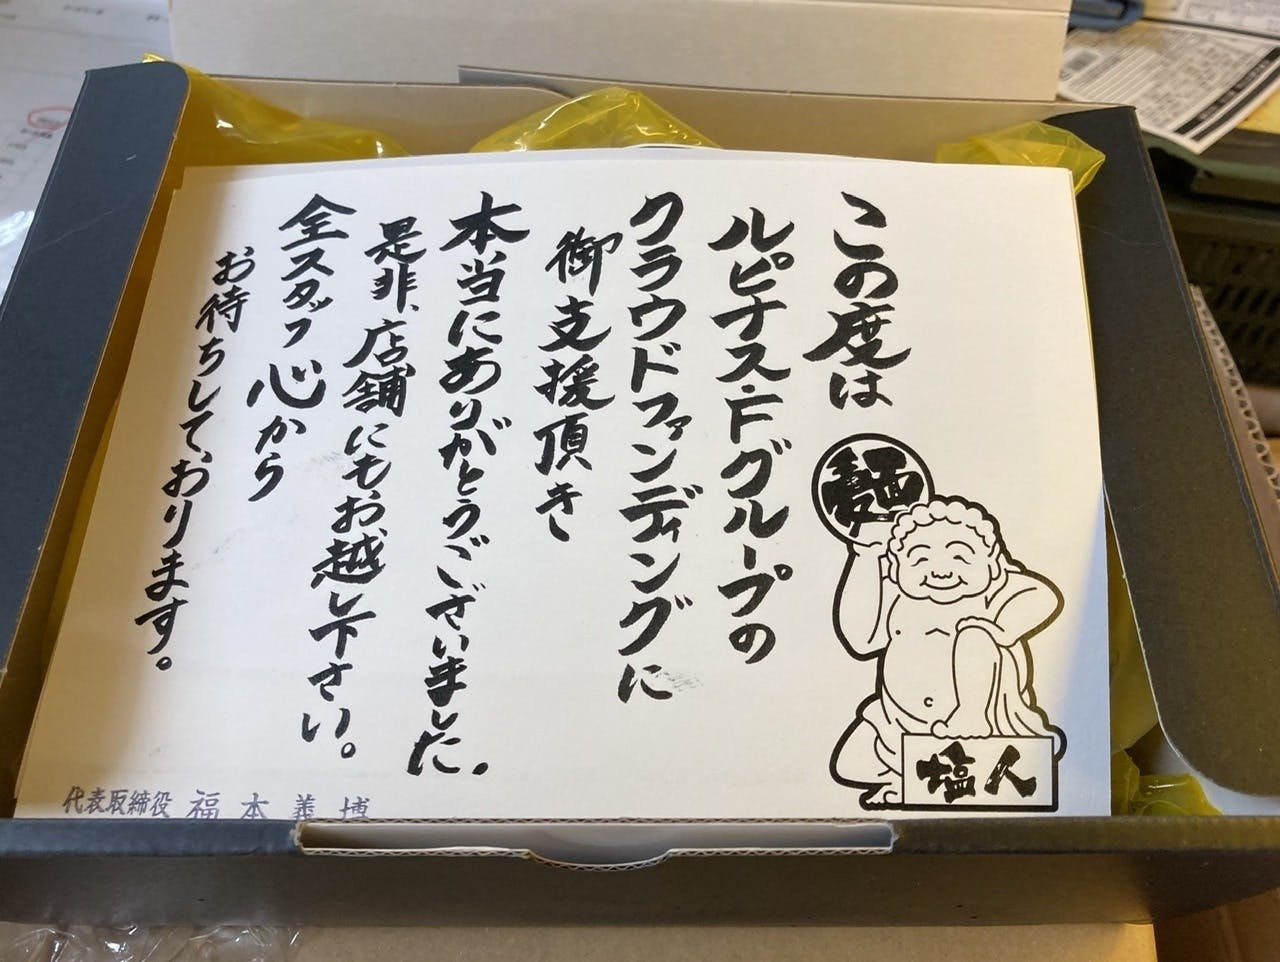 この度は
ルピナス・Fグループの
クラウドファンディングに
御支援頂き
本当にありがとうございました.
是非、店舗にもお越し下さい。
全スタッフ心から
お待ちして、おります。
代表取締役 福本義博
麺
塩人